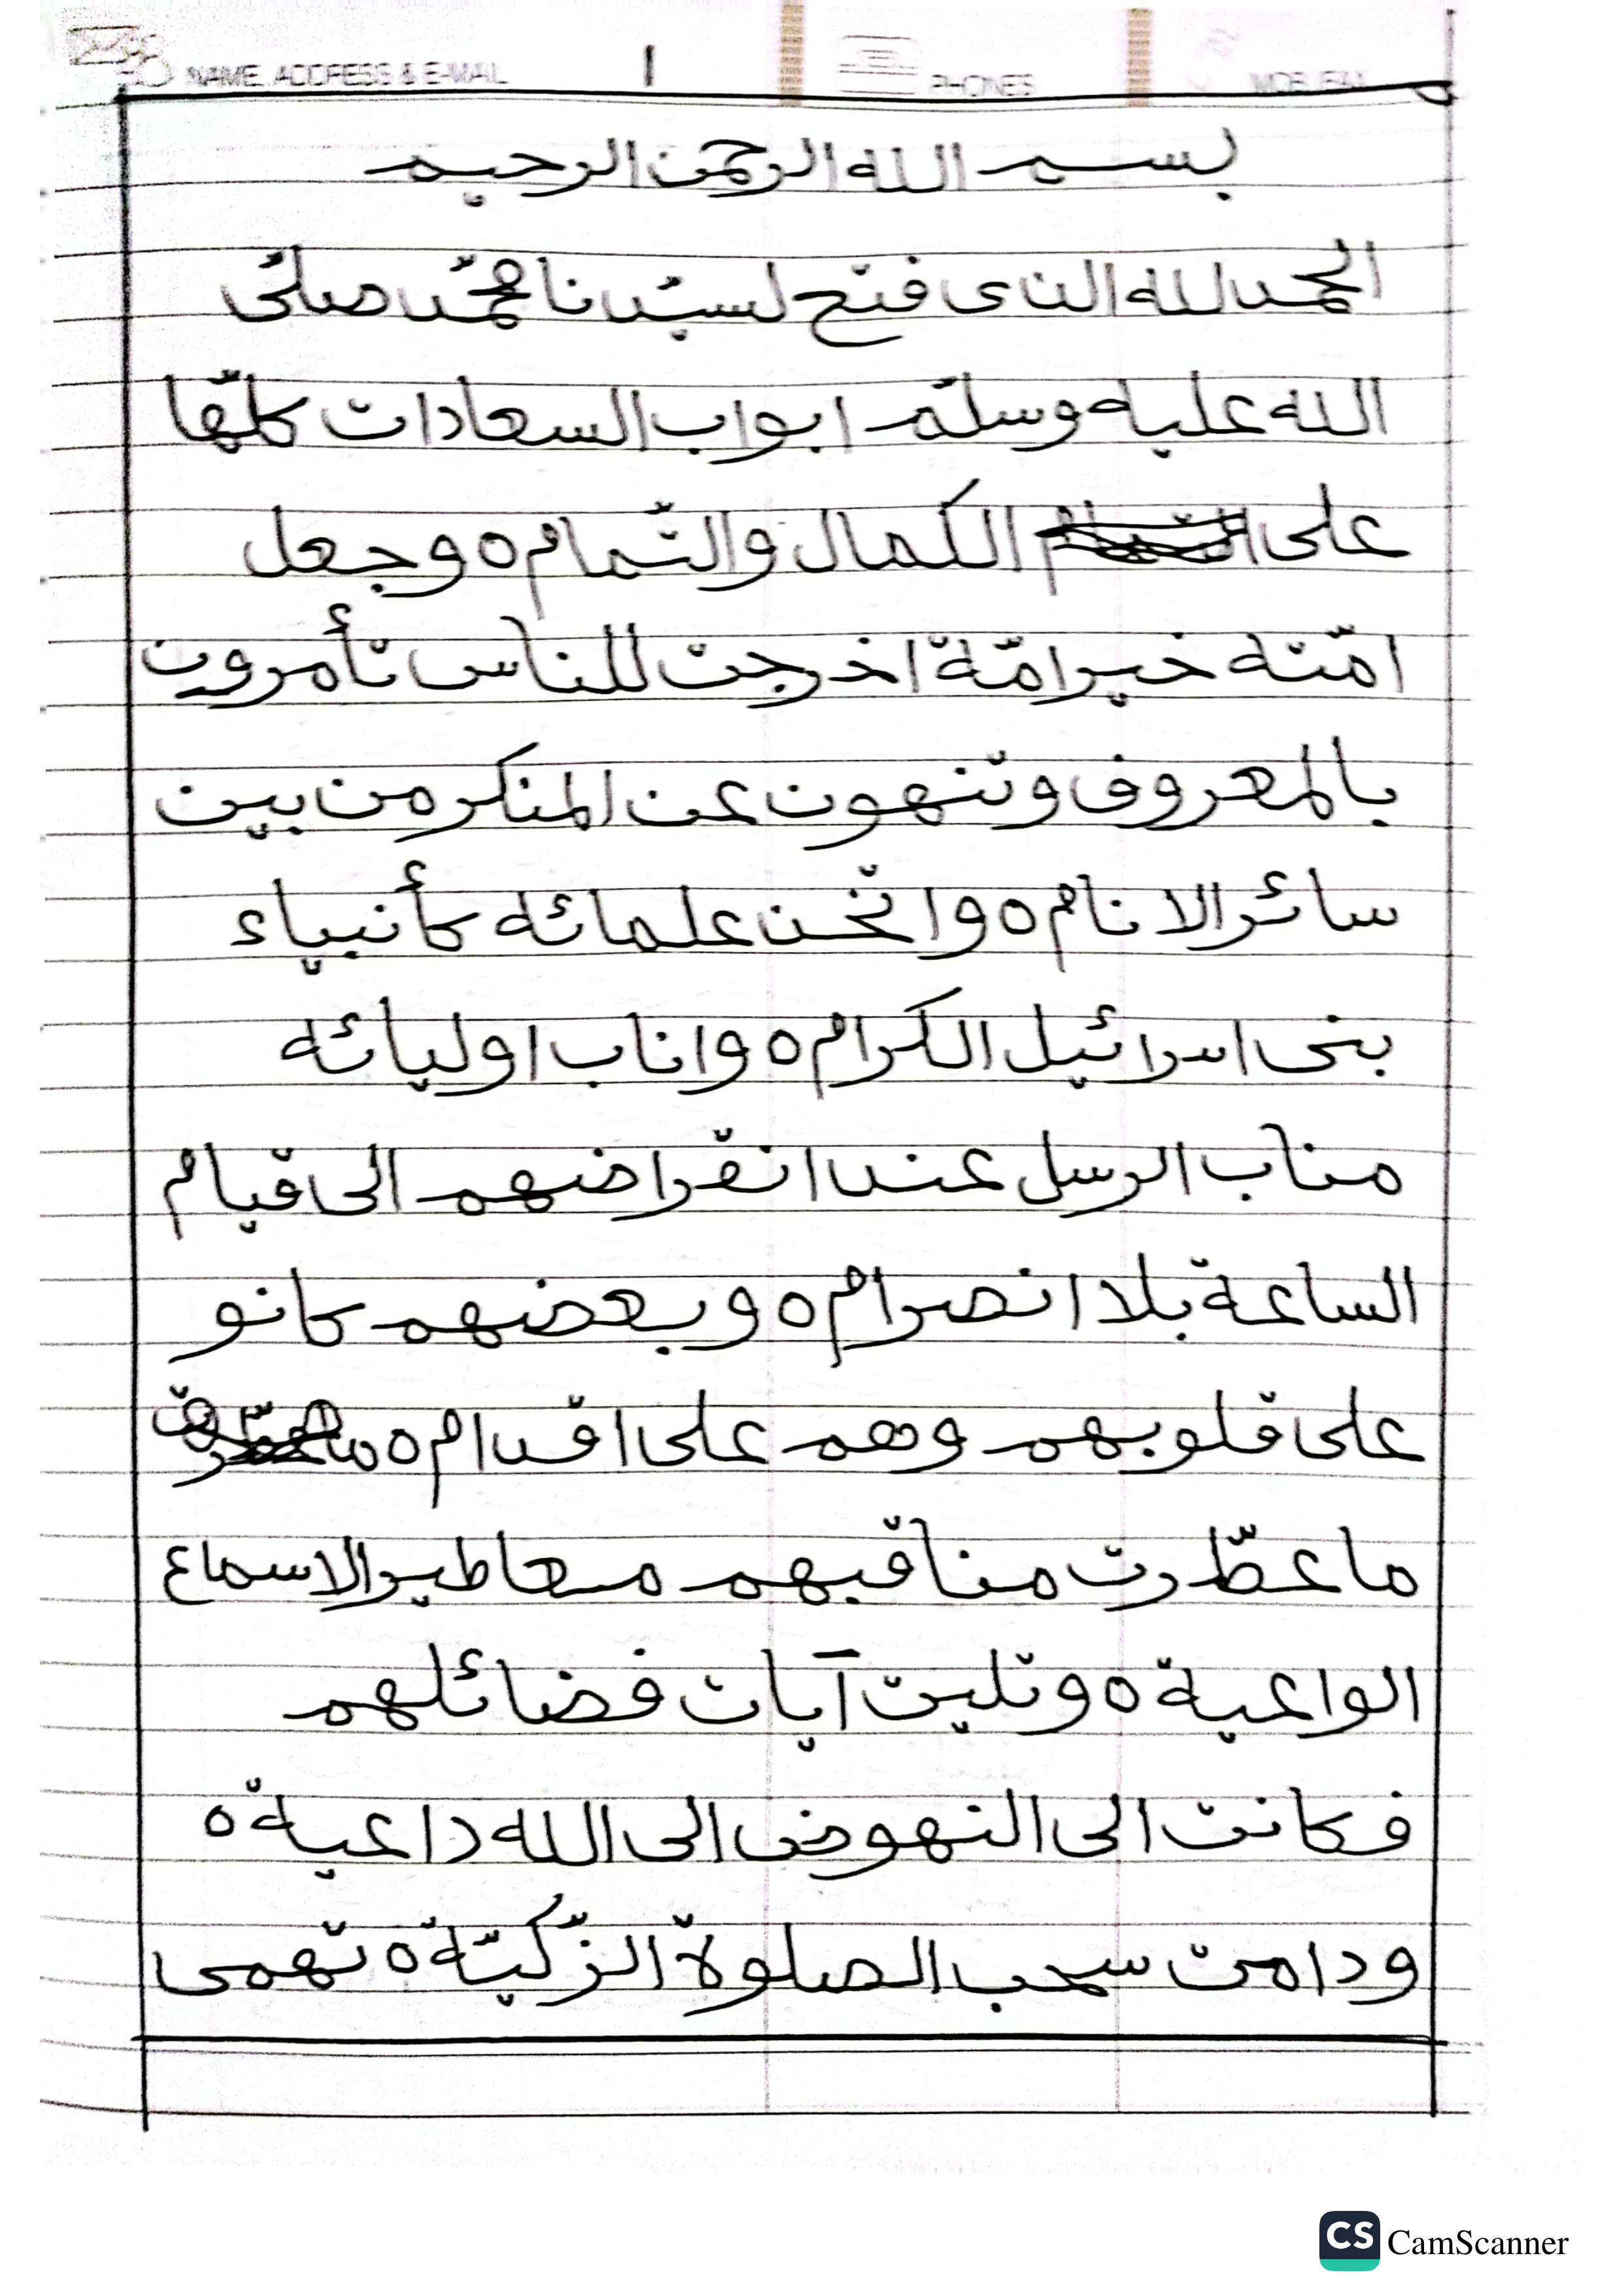 NAME, ADDRESS & E-MAIL ١ PHONES MOB./FAX
بسم الله الرحمن الرحيم
الحمد لله الذى فتح لسيّدنا محمّد صلّى
الله عليه وسلّم ابواب السعادات كلّها
على الكمال والتّمام ٥ وجعل
امّته خير امّة اخرجت للناس تأمرون
بالمعروف وتنهون عن المنكر من بين
سائر الانام ٥ واتّخذ علمائه كأنبياء
بنى اسرائيل الكرام ٥ واناب اوليائه
مناب الرسل عند انقراضهم الى قيام
الساعة بلا انصرام ٥ وبعضهم كانو
على قلوبهم وهم على اقدام ٥
ما عطّرت مناقبهم معاطير الاسماع
الواعية ٥ وتليت آيات فضائلهم
فكانت الى النهوض الى الله داعية ٥
ودامت سحب الصلوة الزّكيّة ٥ تهمى
CS CamScanner